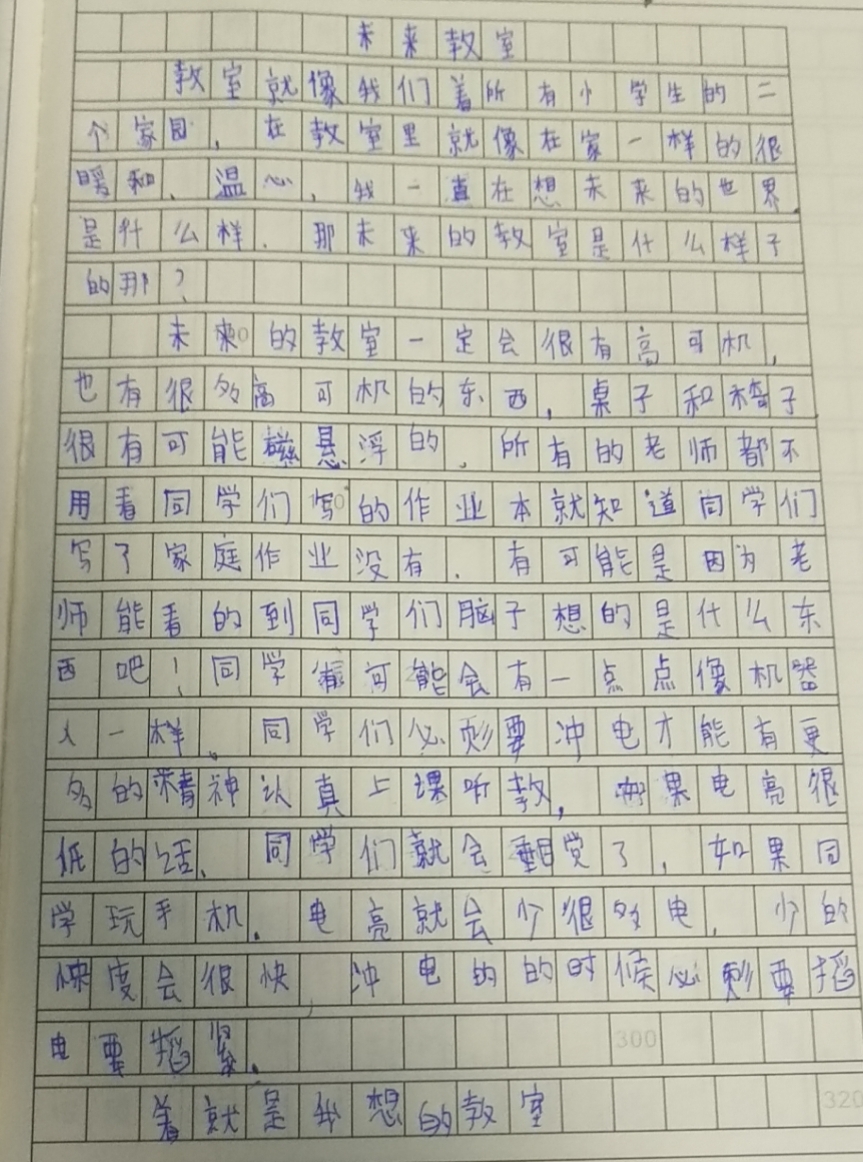 未来教室
教室就像我们着所有小学生的二
个家园，在教室里就像在家一样的很
暖和、温心，我一直在想未来的世界
是什么样．那未来的教室是什么样子
的那？
未来的教室一定会很有高可机，
也有很多高可机的东西，桌子和椅子
很有可能磁悬浮的．所有的老师都不
用看同学们写的作业本就知道同学们
写了家庭作业没有．有可能是因为老
师能看的到同学们脑子想的是什么东
西吧！同学可能会有一点点像机器
人一样。同学们必要冲电才能有更
多的精神认真上课听教，如果电亮很
低的话、同学们就会睡觉了，如果同
学玩手机．电亮就会少很多电，少的
度会很快，冲电的的时候必要插
电要插紧．
着就是我想的教室
300
320